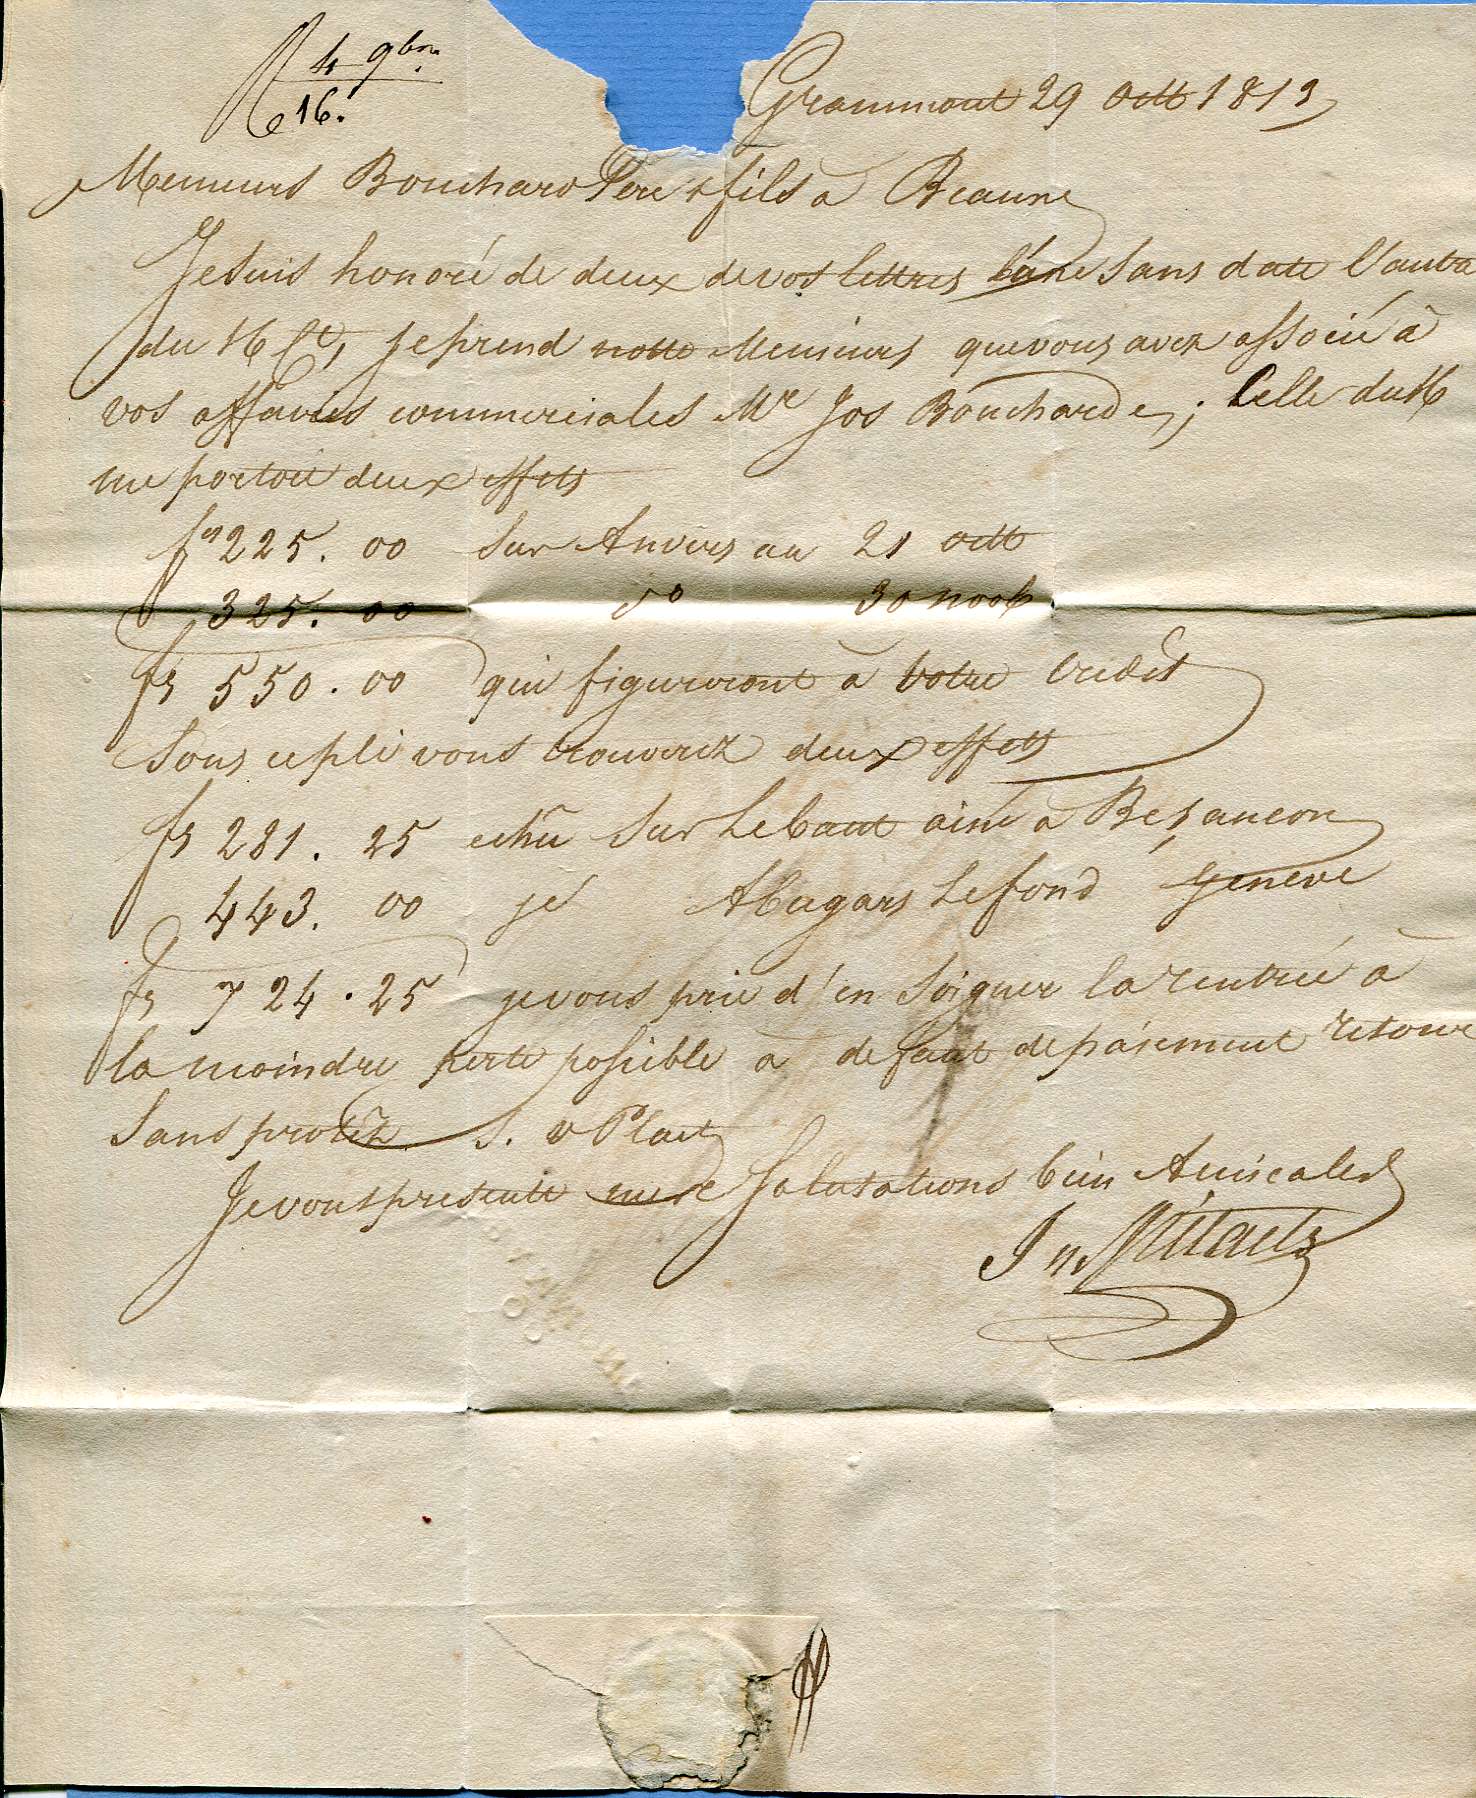 R 4 9bre.
16.
Grammont 29 Octt 1813
Messieurs Bouchard Pere & fils à Beaune
Je suis honoré de deux de vos lettres l'une sans date l'autre
du 16 Ct, je prend notte Messieurs que vous avez associé à
vos affaires commerciales Mr Jos Bouchard; Celle du 16
me portoit deux effets
fs 225. 00 sur Anvers au 21 octt
325. 00 do 30 novb
fs 550. 00 qui figureront à votre credit
Sous ce pli vous trouverez deux effets
fs 281. 25 echu sur Lebaut ainé a Besançon
443. 00 Lefond Geneve
fs 724. 25 je vous prie d'en soigner la rentrée à
la moindre perte possible a defaut de paiement retour
sans protêt S. v Plait
Je vous presente mes Salutations bien Amicales